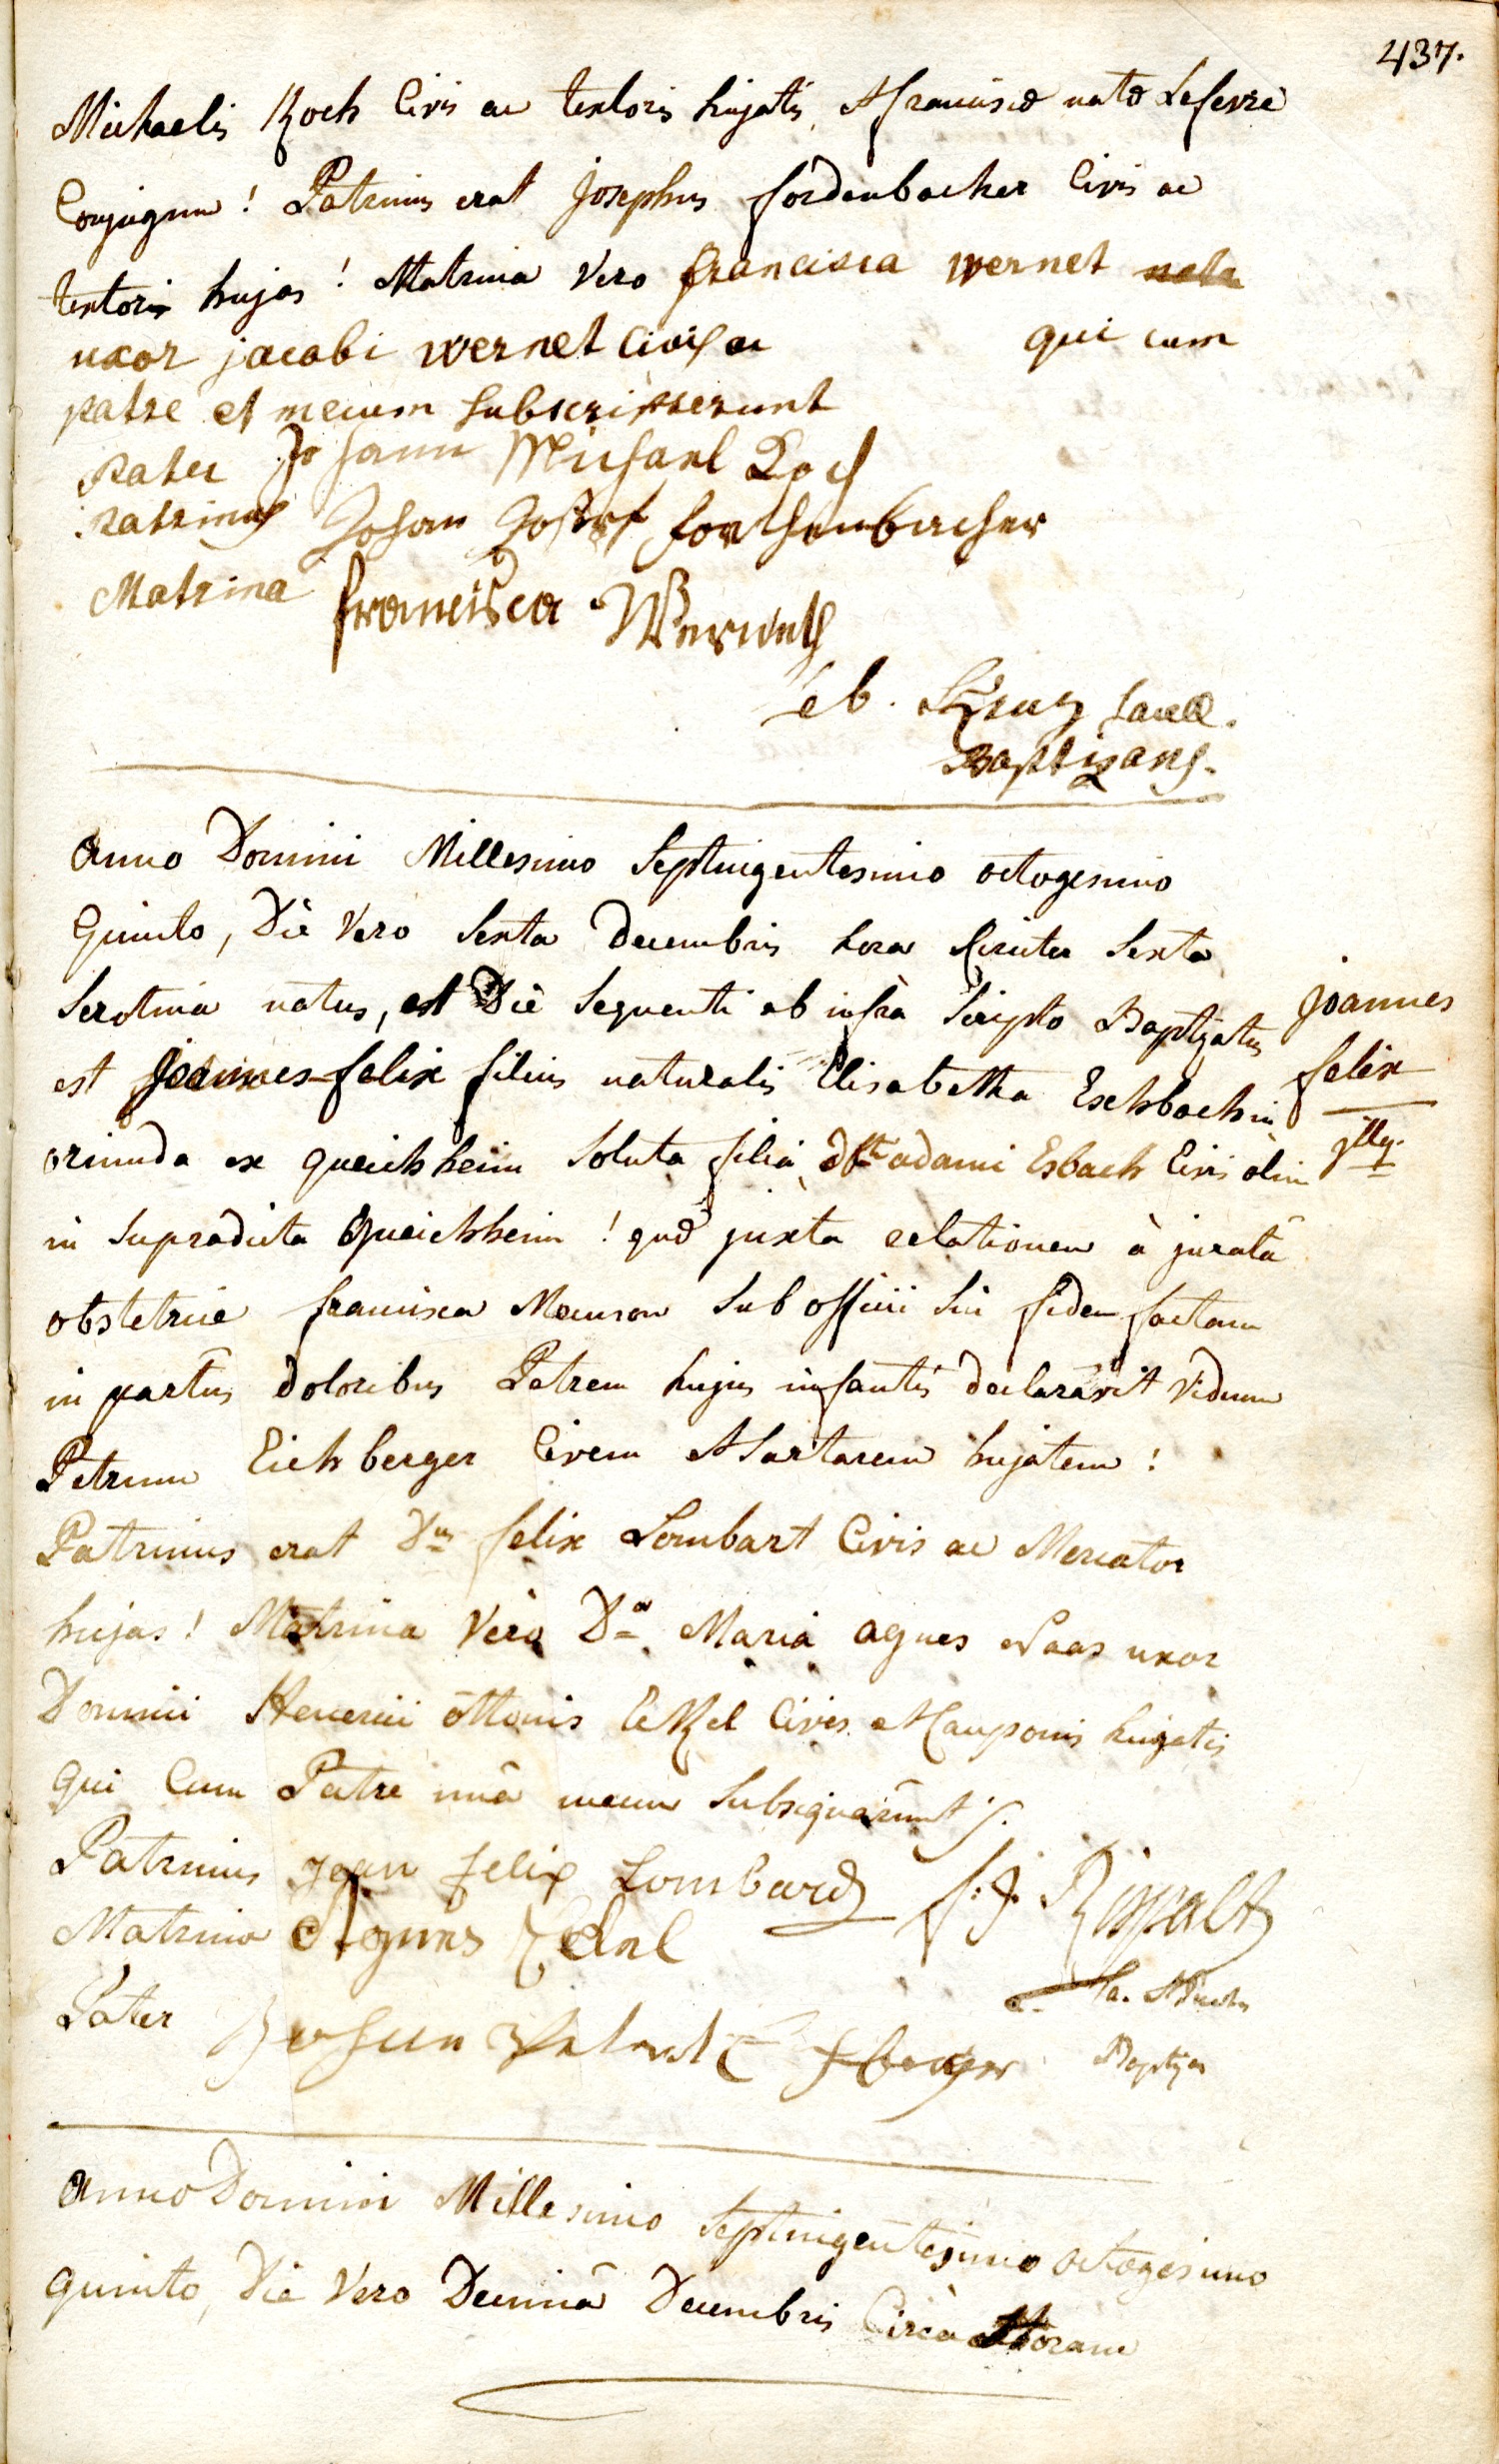 437.
Michaelis Koch Civis ac textoris hujatis, & franciscæ natæ Lefevre
Conjugum! Patrinus erat Josephus fordenbacher Civis ac
textoris hujas! Matrina Vero francisca wernet nata
uxor jacobi wernet Civis ac qui cum
patre et mecum subscripserunt
Pater Johann Michael Koch
patrinus Johan Joseph forthenbacher
Matrina francisca Werneth
Seb. Kruz Sacell.
Baptizans.
Anno Domini Millesimo Septingentesimo octogesimo
Quinto, Die Vero Sexta Decembris hora circiter Sexta
Serotina natus, est Die Sequenti ab infra Scripto Baptizatus
est Joannes felix filius naturalis Elisabetha Eschbachin
oriunda ex queichheim Soluta filia, dfti adami Esbach Civis olim
in Supradicta Queichheim! quæ juxta relationem à jurata
obstetrice francisca Meurson Sub officii Sui fidem factam
in partus doloribus Patrem hujus infantis declaravit Viduum
Petrum Eichberger Civem & Sartorem hujatem!
Patrinus erat Dnus felix Lombart Civis ac Mercator
hujas! Matrina Vero Dna Maria agnes Naas uxor
Domini Henerici ottonis Cekel Civis & Cauponis hujatis
Qui Cum Patre unâ mecum Subsignarunt ʃ.
Joannes
felix
illeg.
Patrinus Jean felix Lombard f: J. Rippalt
Matrina Agnes Zekel
Pater Johan
Baptizans
Anno Domini Millesimo Septingentesimo octogesimo
quinto, Die Vero Decimâ Decembris Circa Horam